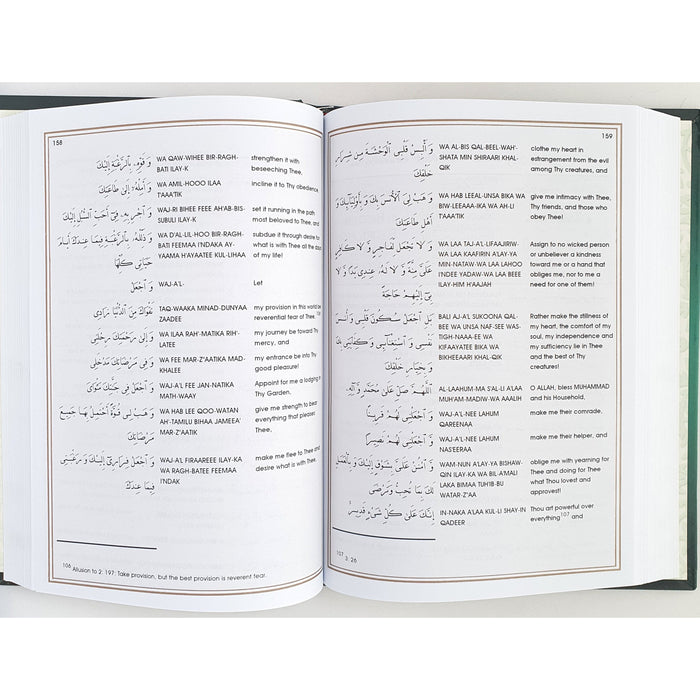 158
وَ قَوِّهِ بِالرَّغْبَةِ إِلَيْكَ
WA QAW-WIHEE BIR-RAGH-
BATI ILAY-K
strengthen it with
beseeching Thee,
وَ أَمِلْهُ إِلَى طَاعَتِكَ
WA AMIL-HOOO ILAA
T'AAA'TIK
incline it to Thy obedience,
وَ أَجْرِ بِهِ فِي أَحَبِّ السُّبُلِ إِلَيْكَ
WAJ-RI BIHEE FEEE AH'AB-BIS-
SUBULI ILAY-K
set it running in the path
most beloved to Thee, and
وَ ذَلِّلْهُ بِالرَّغْبَةِ فِيمَا عِنْدَكَ أَيَّامَ
حَيَاتِي كُلِّهَا
WA D'AL-LIL-HOO BIR-RAGH-
BATI FEEMAA I'NDAKA AY-
YAAMA H'AYAATEE KUL-LIHAA
subdue it through desire for
what is with Thee all the days
of my life!
وَ اجْعَلْ
WAJ-A'L-
Let
تَقْوَاكَ مِنَ الدُّنْيَا زَادِي
TAQ-WAAKA MINAD-DUNYAA
ZAADEE
my provision in this world be
reverential fear of Thee,
وَ إِلَى رَحْمَتِكَ رِحْلَتِي
WA ILAA RAH'-MATIKA RIH'-
LATEE
my journey be toward Thy
mercy, and
وَ فِي مَرْضَاتِكَ مَدْخَلِي
WA FEE MAR-Z"AATIKA MAD-
KHALEE
my entrance be into Thy
good pleasure!
وَ اجْعَلْ فِي جَنَّتِكَ مَثْوَايَ
WAJ-A'L FEE JAN-NATIKA
MATH-WAAY
Appoint for me a lodging in
Thy Garden,
وَ هَبْ لِي قُوَّةً أَحْتَمِلُ بِهَا جَمِيعَ
مَرْضَاتِكَ
WA HAB LEE QOO-WATAN
AH'-TAMILU BIHAA JAMEEA'
MAR-Z"AATIK
give me strength to bear
everything that pleases
Thee,
وَ اجْعَلْ فِرَارِي إِلَيْكَ وَ رَغْبَتِي
فِيمَا عِنْدَكَ
WAJ-A'L FIRAAREEE ILAY-KA
WA RAGH-BATEE FEEMAA
I'NDAK
make me flee to Thee and
desire what is with Thee,
106 Allusion to 2: 197: Take provision, but the best provision is reverent fear.
159
وَ أَلْبِسْ قَلْبِيَ الْوَحْشَةَ مِنْ شِرَارِ
خَلْقِكَ
WA AL-BIS QAL-BEEL-WAH'-
SHATA MIN SHIRAARI KHAL-
QIK
clothe my heart in
estrangement from the evil
among Thy creatures, and
وَ هَبْ لِيَ الْأُنْسَ بِكَ وَ بِأَوْلِيَائِكَ وَ
أَهْلِ طَاعَتِكَ
WA HAB LEEAL-UNSA BIKA WA
BIW-LEEAAA-IKA WA AH-LI
T'AAA'TIK
give me intimacy with Thee,
Thy friends, and those who
obey Thee!
وَ لَا تَجْعَلْ لِفَاجِرٍ وَ لَا كَافِرٍ
عَلَيَّ مِنَّةً وَ لَا لَهُ عِنْدِي يَدًا وَ لَا
بِي إِلَيْهِمْ حَاجَةً
WA LAA TAJ-A'L-LIFAAJIRIW-
WA LAA KAAFIRIN A'LAY-YA
MIN-NATAW-WA LAA LAHOO
I'NDEE YADAW-WA LAA BEEE
ILAY-HIM H'AAJAH
Assign to no wicked person
or unbeliever a kindness
toward me or a hand that
obliges me, nor to me a
need for one of them!
بَلِ اجْعَلْ سُكُونَ قَلْبِي وَ أُنْسَ
نَفْسِي وَ اسْتِغْنَائِي وَ كِفَايَتِي بِكَ
وَ بِخِيَارِ خَلْقِكَ
BALI AJ-A'L SUKOONA QAL-
BEE WA UNSA NAF-SEE WAS-
TIGH-NAAA-EE WA
KIFAAYATEE BIKA WA
BIKHEEAARI KHAL-QIK
Rather make the stillness of
my heart, the comfort of my
soul, my independence and
my sufficiency lie in Thee
and the best of Thy
creatures!
اللَّهُمَّ صَلِّ عَلَى مُحَمَّدٍ وَ آلِهِ
AL-LAAHUM-MA S'AL-LI A'LAA
MUH'AM-MADIW-WA AAALIH
O ALLAH, bless MUHAMMAD
and his Household,
وَ اجْعَلْنِي لَهُمْ قَرِينًا
WAJ-A'L-NEE LAHUM
QAREENAA
make me their comrade,
وَ اجْعَلْنِي لَهُمْ نَصِيرًا
WAJ-A'L-NEE LAHUM
NAS'EERAA
make me their helper, and
وَ امْنُنْ عَلَيَّ بِشَوْقٍ إِلَيْكَ وَ بِالْعَمَلِ
لَكَ بِمَا تُحِبُّ وَ تَرْضَى
WAM-NUN A'LAY-YA BISHAW-
QIN ILAY-KA WA BIL-A'MALI
LAKA BIMAA TUH'IB-BU
WATAR-Z"AA
oblige me with yearning for
Thee and doing for Thee
what Thou lovest and
approvest!
إِنَّكَ عَلَى كُلِّ شَيْءٍ قَدِيرٌ
IN-NAKA A'LAA KUL-LI SHAY-IN
QADEER
Thou art powerful over
everything107 and
107 3: 26